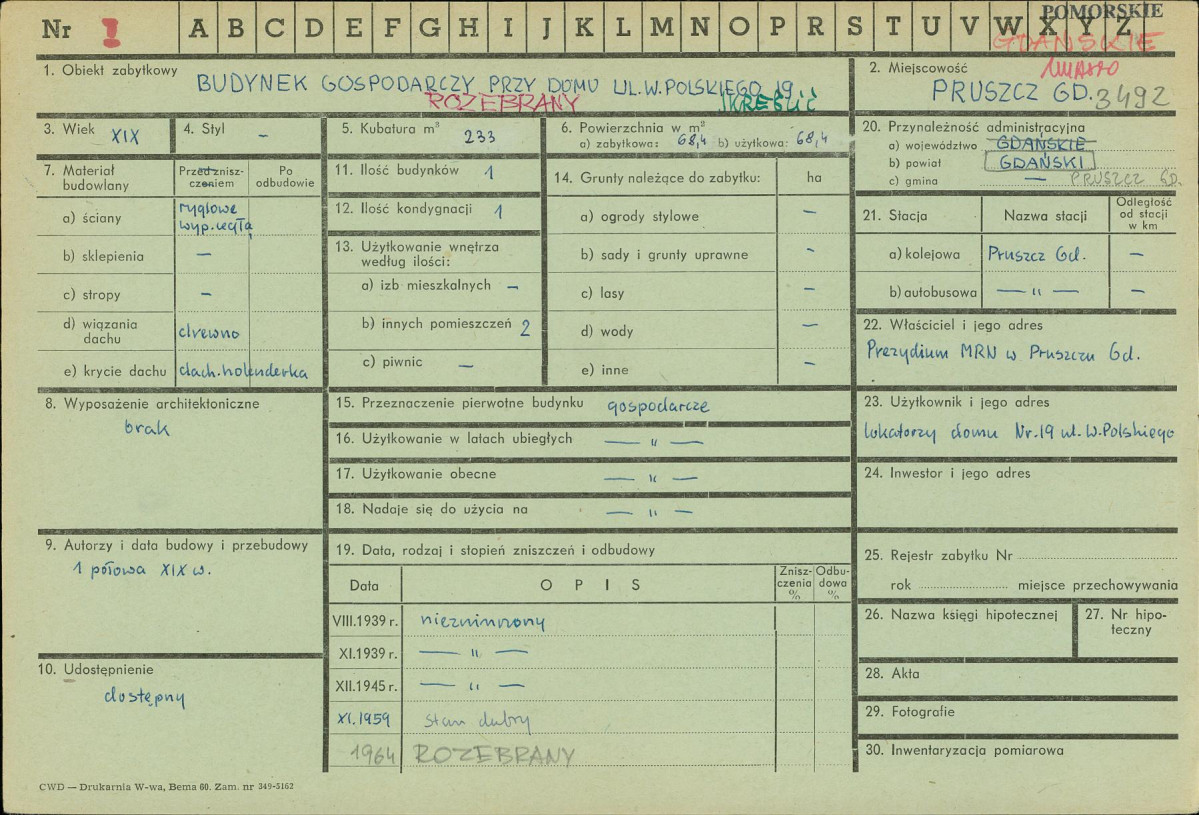 POMORSKIE
Nr A B C D E F G H I J K L M N O P R S T U V W X Y Z
GDAŃSKIE
miasto
1. Obiekt zabytkowy
BUDYNEK GOSPODARCZY PRZY DOMU UL. W. POLSKIEGO 19
ROZEBRANY SKREŚLIĆ
2. Miejscowość
PRUSZCZ GD. 3492
3. Wiek XIX
4. Styl —
5. Kubatura m³ 233
6. Powierzchnia w m²
a) zabytkowa: 68,4 b) użytkowa: 68,4
7. Materiał budowlany
Przed znisz-
czeniem
Po
odbudowie
a) ściany ryglowe
wyp. cegłą
b) sklepienia —
c) stropy —
d) wiązania
dachu drewno
e) krycie dachu dach. holenderka
8. Wyposażenie architektoniczne
brak
9. Autorzy i data budowy i przebudowy
1 połowa XIX w.
10. Udostępnienie
dostępny
11. Ilość budynków 1
12. Ilość kondygnacji 1
13. Użytkowanie wnętrza
według ilości:
a) izb mieszkalnych —
b) innych pomieszczeń 2
c) piwnic —
14. Grunty należące do zabytku: ha
a) ogrody stylowe —
b) sady i grunty uprawne -
c) lasy —
d) wody —
e) inne —
15. Przeznaczenie pierwotne budynku gospodarcze
16. Użytkowanie w latach ubiegłych — " —
17. Użytkowanie obecne — " —
18. Nadaje się do użycia na — " —
19. Data, rodzaj i stopień zniszczeń i odbudowy
Data OPIS Znisz-
czenia
% Odbu-
dowa
%
VIII.1939 r. niezniszczony
XI.1939 r. — " —
XII.1945 r. — " —
XI.1959 stan dobry
1964 ROZEBRANY
20. Przynależność administracyjna
a) województwo GDAŃSKIE
b) powiat GDAŃSKI
c) gmina — PRUSZCZ GD.
21. Stacja Nazwa stacji Odległość
od stacji
w km
a) kolejowa Pruszcz Gd. —
b) autobusowa — " — —
22. Właściciel i jego adres
Prezydium MRN w Pruszczu Gd.
23. Użytkownik i jego adres
lokatorzy domu Nr. 19 ul. W. Polskiego
24. Inwestor i jego adres
25. Rejestr zabytku Nr
rok miejsce przechowywania
26. Nazwa księgi hipotecznej
27. Nr hipo-
teczny
28. Akta
29. Fotografie
30. Inwentaryzacja pomiarowa
CWD — Drukarnia W-wa, Bema 60. Zam. nr 349-5162